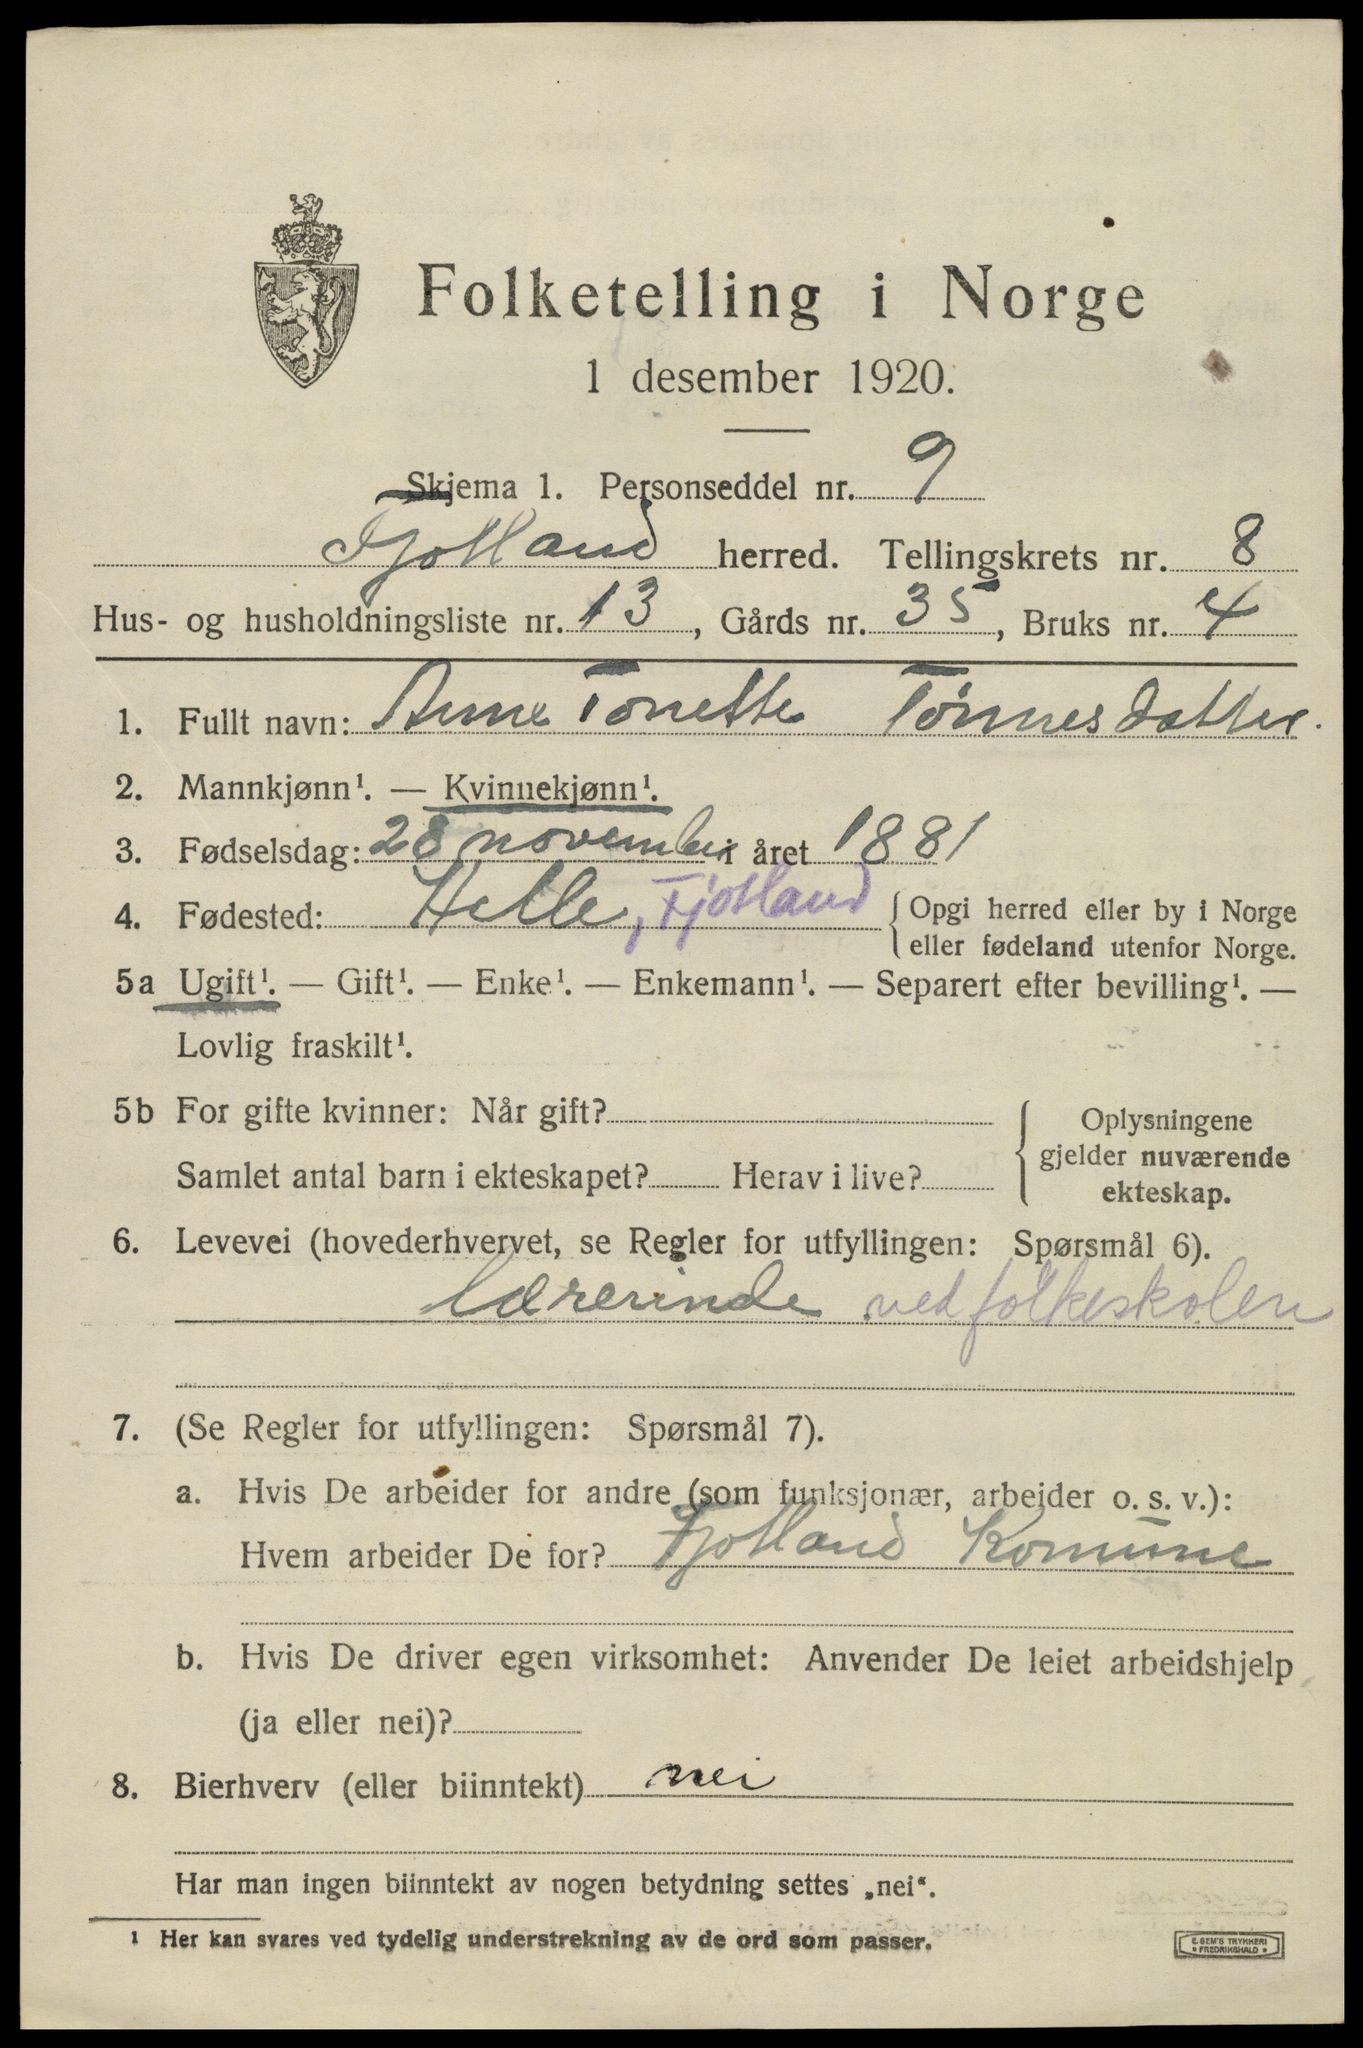 Folketelling i Norge
1 desember 1920.
Skjema 1. Personseddel nr. 9
Fjotland herred. Tellingskrets nr. 8
Hus- og husholdningsliste nr. 13, Gårds nr. 35, Bruks nr. 4
1. Fullt navn: Anne Tonette Tönnesdatter.
2. Mannkjønn¹. — Kvinnekjønn¹.
3. Fødselsdag: 28 november i året 1881
4. Fødested: Helle, Fjotland { Opgi herred eller by i Norge
eller fødeland utenfor Norge.
5a Ugift¹. — Gift¹. — Enke¹. — Enkemann¹. — Separert efter bevilling¹. —
Lovlig fraskilt¹.
5b For gifte kvinner: Når gift?
Samlet antal barn i ekteskapet? Herav i live?
{ Oplysningene
gjelder nuværende
ekteskap.
6. Levevei (hovederhvervet, se Regler for utfyllingen: Spørsmål 6).
lærerinde ved folkeskolen
7. (Se Regler for utfyllingen: Spørsmål 7).
a. Hvis De arbeider for andre (som funksjonær, arbeider o. s. v.):
Hvem arbeider De for? Fjotland Komune
b. Hvis De driver egen virksomhet: Anvender De leiet arbeidshjelp
(ja eller nei)?
8. Bierhverv (eller biinntekt) nei
Har man ingen biinntekt av nogen betydning settes „nei“.
¹ Her kan svares ved tydelig understrekning av de ord som passer.
E. SEM'S TRYKKERI
• FREDRIKSHALD •